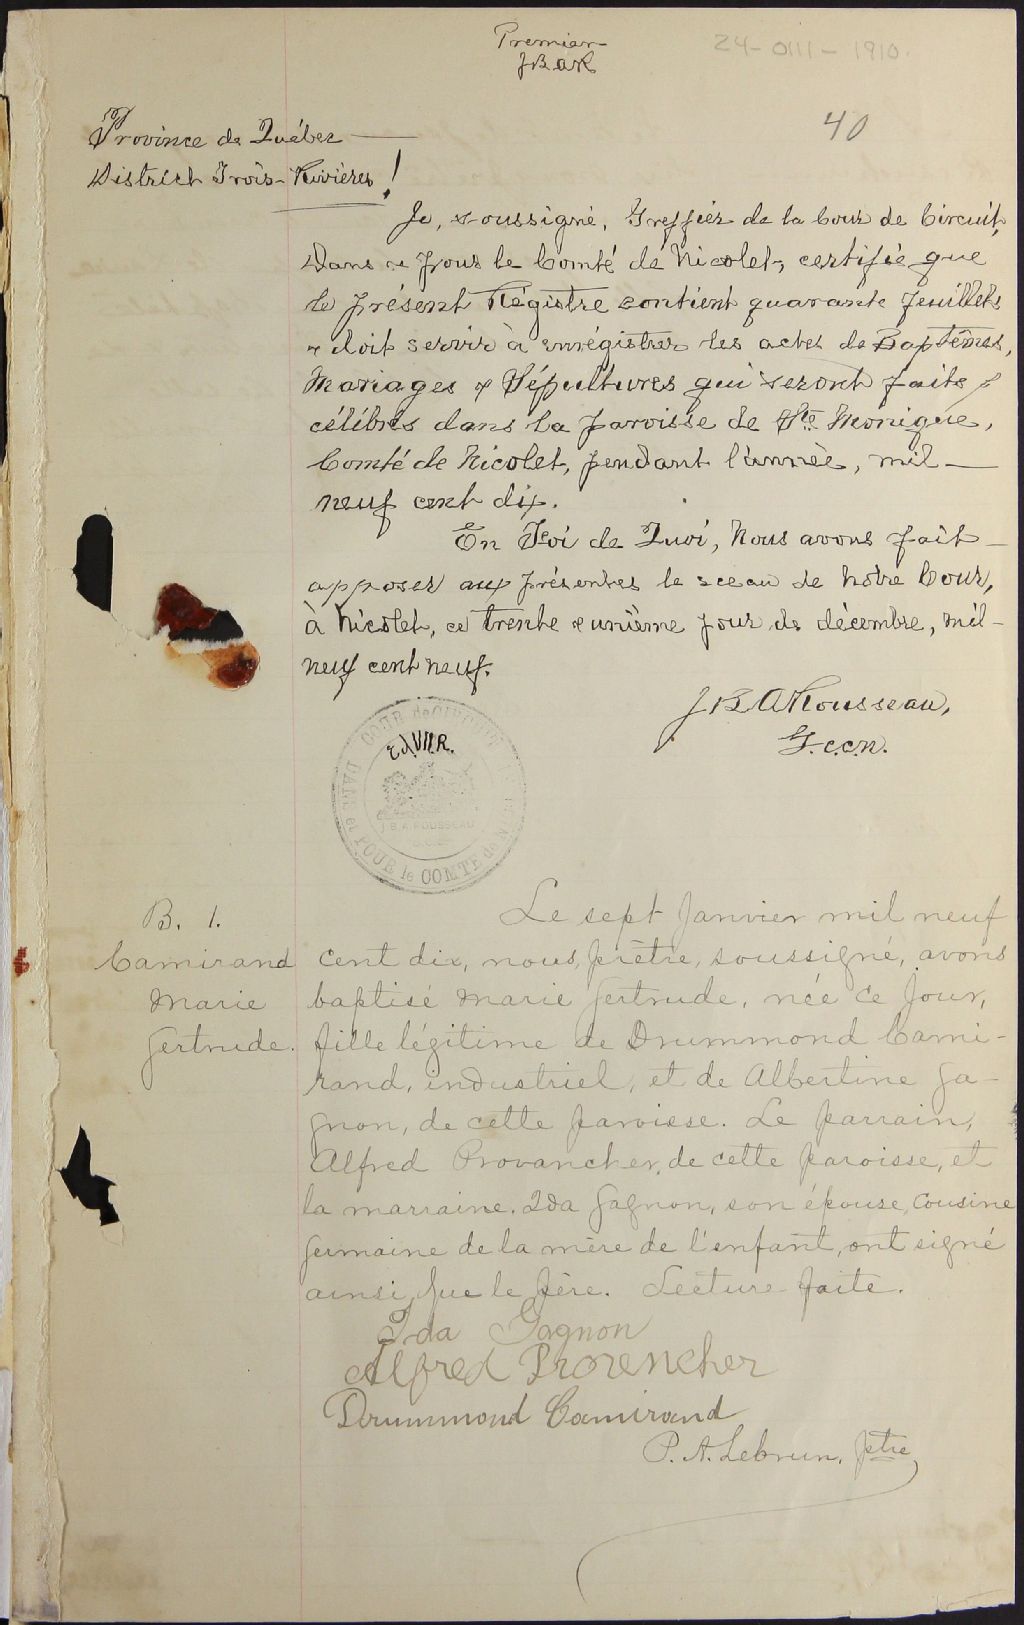 Premier
JBAR
24-0111-1910.
40
Province de Québec
District Trois-Rivières!
Je, soussigné, Greffier de la Cour de Circuit,
Dans & pour le Comté de Nicolet, certifie que
le présent Régistre contient quarante feuillets
& doit servir à enrégistrer les actes de Baptêmes,
Mariages & Sépultures qui seront faits &
célébrés dans la paroisse de Ste Monique,
Comté de Nicolet, pendant l'année, mil
neuf cent dix.
En Foi de Quoi, Nous avons fait
apposer aux présentes le sceau de Notre Cour,
à Nicolet, ce trente & unième jour de décembre, mil
neuf cent neuf.
JBARousseau,
G.c.c.n.
COUR de CIRCUIT
DANS et POUR le COMTE de
Ed.VII.R.
J.B.A. ROUSSEAU
B. 1.
Camirand
Marie
Gertrude.
Le sept Janvier mil neuf
cent dix, nous, prêtre, soussigné, avons
baptisé Marie Gertrude, née ce jour,
fille légitime de Drummond Cami-
rand, industriel, et de Albertine Ga-
gnon, de cette paroisse. Le parrain,
Alfred Provancher, de cette paroisse, et
la marraine, Ida Gagnon, son épouse, cousine
germaine de la mère de l'enfant, ont signé
ainsi que le père. Lecture faite.
Ida Gagnon
Alfred Provencher
Drummond Camirand
P. A. Lebrun, ptre